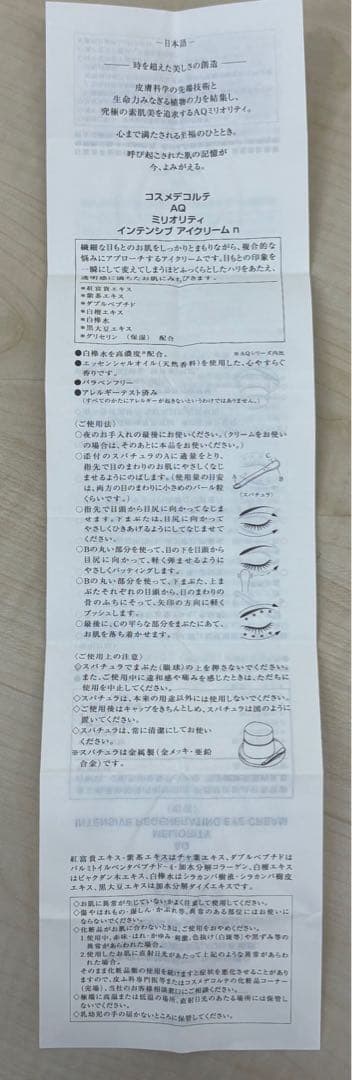 －日本語－
時を超えた美しさの創造
皮膚科学の先端技術と
生命力みなぎる植物の力を結集し、
究極の素肌美を追求するAQミリオリティ。
心まで満たされる至福のひととき。
呼び起こされた肌の記憶が
今、よみがえる。
コスメデコルテ
AQ
ミリオリティ
インテンシブ アイクリーム n
繊細な目もとのお肌をしっかりとまもりながら、複合的な
悩みにアプローチするアイクリームです。目もとの印象を
一瞬にして変えてしまうほどふっくらとしたハリをあたえ、
透明感に満ちたお肌にみちびきます。
*紅富貴エキス
*紫茶エキス
*ダブルペプチド
*白檀エキス
*白樺水
*黒大豆エキス
*グリセリン（保湿）配合
●白樺水を高濃度※配合。 ※AQシリーズ内比
●エッセンシャルオイル(天然香料)を使用した、心やすらぐ
香りです。
●パラベンフリー
●アレルギーテスト済み
(すべてのかたにアレルギーが起きないというわけではありません。)
〈ご使用法〉
○夜のお手入れの最後にお使いください。(クリームをお使い
の場合は、そのあとに本品をお使いください。)
○添付のスパチュラのAに適量をとり、
指先で目のまわりのお肌にやさしくなじ
ませるようにのばします。(使用量の目安
は、両方の目のまわりに小さめのパール粒
くらいです。)
C
A
B
(スパチュラ)
○指先で目頭から目尻に向かってなじま
せます。下まぶたは、目尻に向かって
やさしくひきあげるようにしてなじませて
ください。
○Bの丸い部分を使って、目の下を目頭から
目尻に向かって、軽く弾ませるように
やさしくパッティングします。
○Bの丸い部分を使って、下まぶた、上ま
ぶたそれぞれの目頭から、目のまわりの
骨のふちにそって、矢印の方向に軽く
プッシュします。
○最後に、Cの平らな部分をまぶたにあて、
お肌を落ち着かせます。
〈ご使用上の注意〉
◇スパチュラでまぶた(眼球)の上を押さないでください。
また、ご使用中に違和感や痛みを感じたときは、ただちに
使用を中止してください。
◇スパチュラは、本来の用途以外には使用しないでください。
◇ご使用後はキャップをきちんとしめ、スパチュラは図のように
置いてください。
◇スパチュラは、常に清潔にしてお使い
ください。
※スパチュラは金属製(金メッキ・亜鉛
合金)です。
INTENSIVE REGENERATING EYE CREAM
MELIORITY
AQ
紅富貴エキス・紫茶エキスはチャ葉エキス、ダブルペプチドは
パルミトイルペンタペプチド-4・加水分解コラーゲン、白檀エキス
はビャクダン木エキス、白樺水はシラカンバ樹液・シラカンバ樹皮
エキス、黒大豆エキスは加水分解ダイズエキスです。
◇お肌に異常が生じていないかよく注意して使用してください。
◇傷やはれもの・湿しん・かぶれ等、異常のある部位にはお使いに
ならないでください。
◇化粧品がお肌に合わないときは、ご使用をおやめください。
1.使用中、赤味・はれ・かゆみ・刺激、色抜け(白斑等)や黒ずみ等の
異常があらわれた場合。
2.使用したお肌に直射日光があたって上記のような異常があらわ
れた場合。
そのまま化粧品類の使用を続けますと症状を悪化させることがあり
ますので、皮ふ科専門医等またはコスメデコルテの化粧品コーナー
(売場)、当社のお客様相談窓口にご相談ください。
◇極端に高温または低温の場所、直射日光のあたる場所には保管し
ないでください。
◇乳幼児の手の届かないところに保管してください。